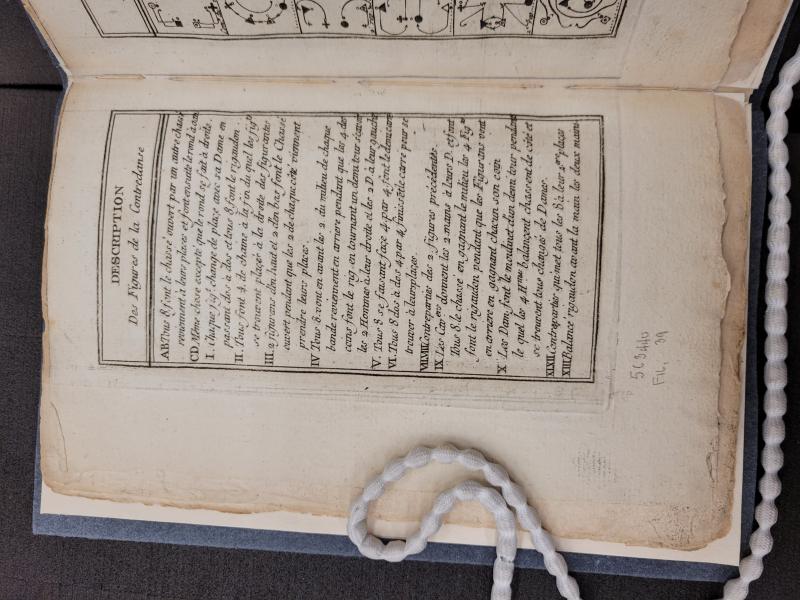 DESCRIPTION
Des Figures de la Contredanse
AB Tous 8 font le chassé ouvert par un autre chassé
reviennent à leurs places et font ensuite le rond à
CD Même chose excepté que le rond se fait à droite.
I. Chaque fig.t change de place avec sa Dame en
passant dos à dos et tous 8 font le rigaudon.
II. Tous font ½ de chaine à la fin du quel les fig.ts
se trouvent placés à la droite des figurantes
III. 2 figurans d'en haut et 2 d'en bas font le Chassé
ouvert pendant que les 2 de chaque côté viennent
prendre leurs places.
IV Tous 8 vont en avant les 2 du milieu de chaque
bande reviennent en arriere pendant que les 4 des
coins font le rig. en tournant un demi tour
les 2 Hommes à leur droite et les 2 D. à leur gauche
V. Tous 8 se faisant face 4 par 4 font le demi
VI. Tous 8 dos à dos 4 par 4 finissent le carré pour se
trouver à leur places.
VII.VIII Contreparties des 2 figures précédentes.
IX Les Cav.ers donnent les 2 mains à leurs D. et font
Tous 8 le chassé en gagnant le milieu les 4 Fig.ts
font le rigaudon pendant que les Figurans vont
en arriere en gagnant chacun son coin
X Les Dam. font le moulinet d'un demi tour pendant
le quel les 4 balançent chassent de côté et
se trouvent tous changés de Dames.
XI.XII Contreparties qui met tous les 8 à leur places
XIII Balance rigaudon avant la main les deux mains
563440
FIL. 39